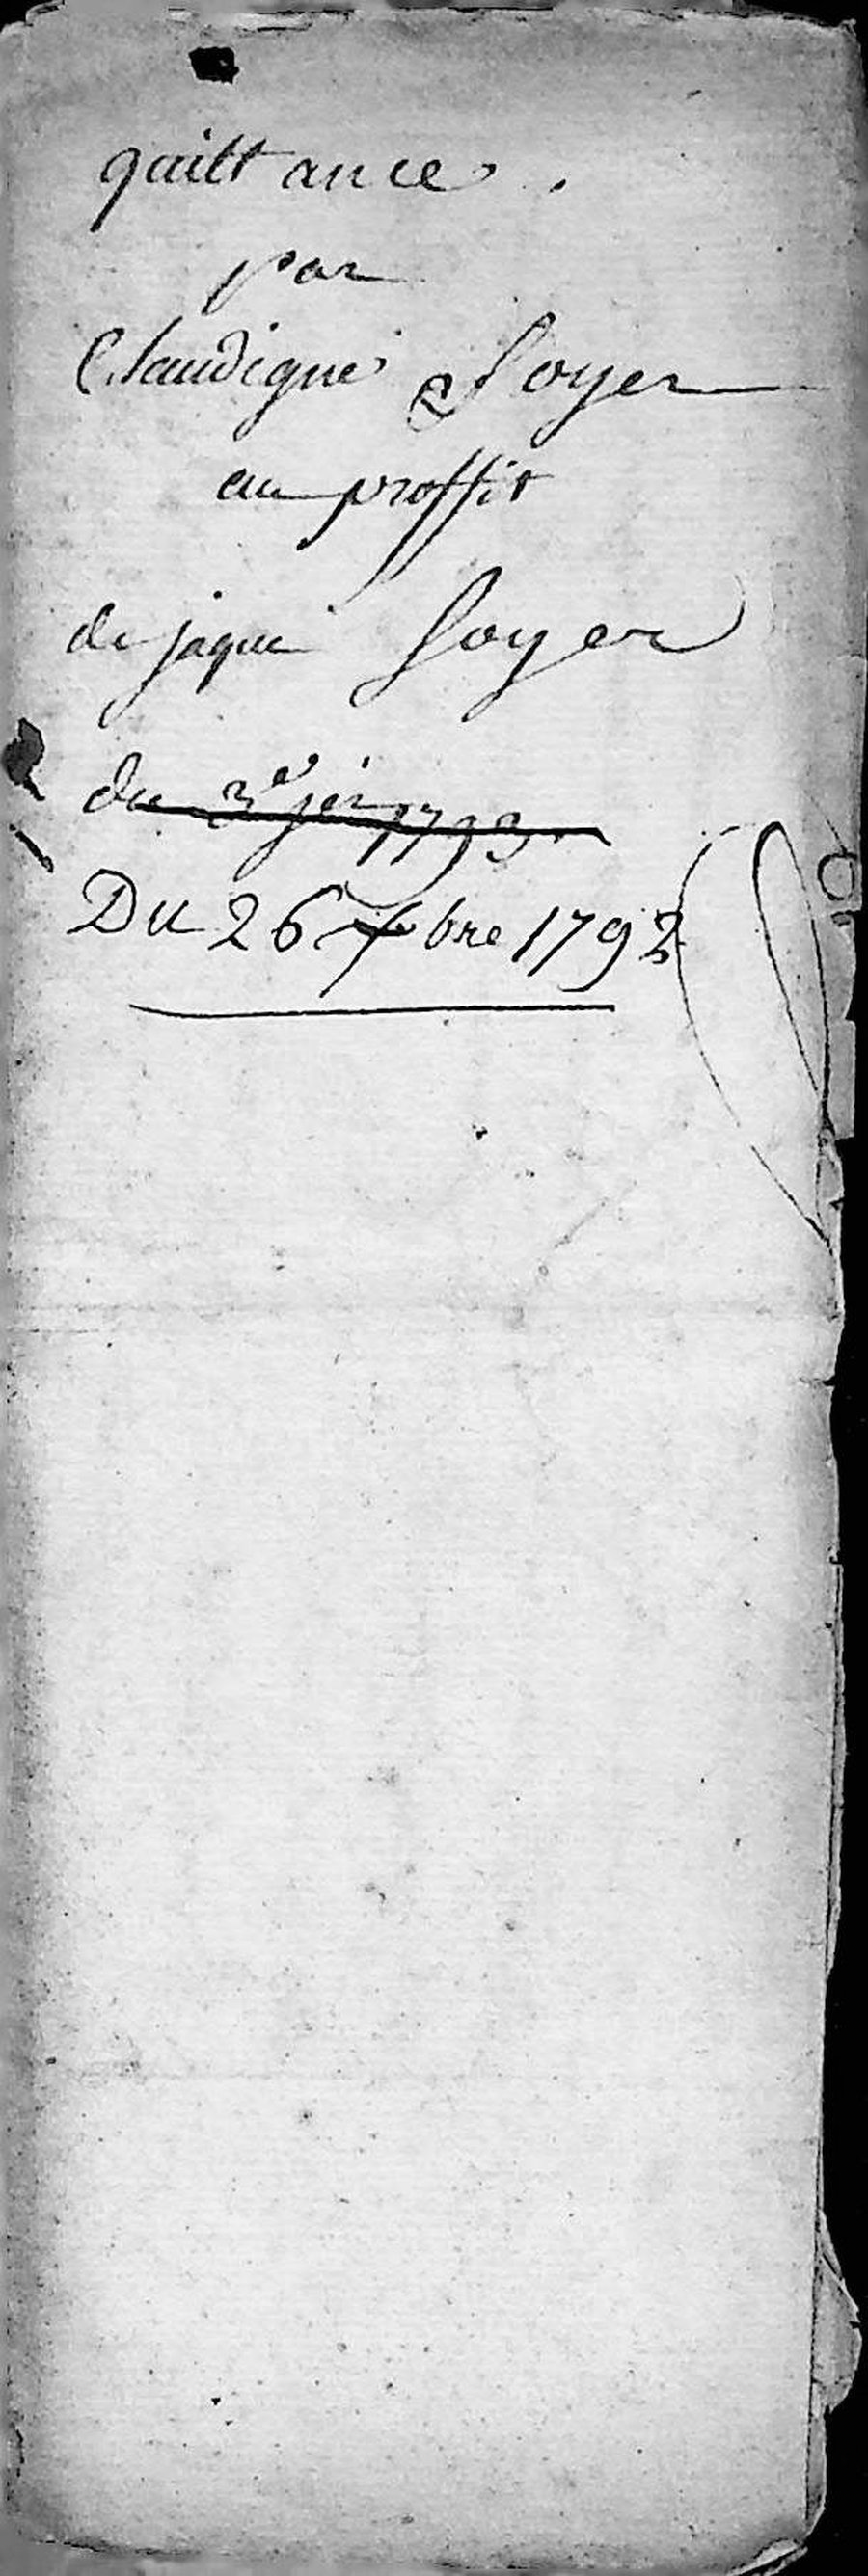 quittance.
par
Claudigne Soyer
au proffit
de jaque Soyer
du 3e jer 1793
Du 26 xbre 1792